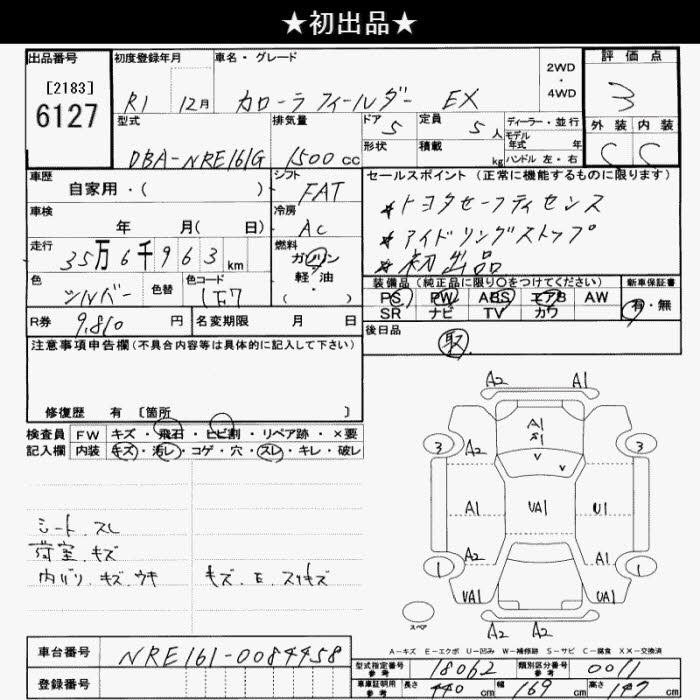 ★初出品★
出品番号 初度登録年月 車名・グレード 2WD・4WD 評価点
[2183]
6127 R1 12月 カローラフィールダー EX 3
型式 排気量 ドア 5 定員 5人 ディーラー・並行 外装 内装
形状 積載 kg モデル年式 年
DBA-NRE161G 1500cc ハンドル 左・右 C C
車歴 シフト セールスポイント(正常に機能するものに限ります)
自家用・( ) FAT
車検 冷房 ★トヨタセーフティセンス
年 月( 日) AC ★アイドリングストップ
走行 燃料 ★初出品
35万6千963km ガソリン
軽・油
色 色替 色コード 装備品(純正品に限り○をつけてください) 新車保証書
シルバー 1F7 PS PW ABS エアB AW 有・無
SR ナビ TV カワ
R券 9,810円 名変期限 月 日 後日品 取
注意事項申告欄(不具合内容等は具体的に記入して下さい)
修復歴 有 〔箇所 〕
検査員 FW キズ・飛石・ヒビ割・リペア跡・×要
記入欄 内装 キズ・汚レ・コゲ・穴・スレ・キレ・破レ
シート、スレ
荷室、キズ
内バリ、キズ、ウキ キズ、E、スリキズ
A2 A1
A1
3 A2 3
A1 UA1 U1
A2 A1
1 1
UA1 UA1
スペア A2 A2
A－キズ E－エクボ U－凹み W－補修跡 S－サビ C－腐食 XX－交換済
車台番号 NRE161-0084458
登録番号
型式指定番号参考 18062 類別区分番号参考 0011
車庫証明用参考 長さ 440cm 幅 169cm 高さ 147cm